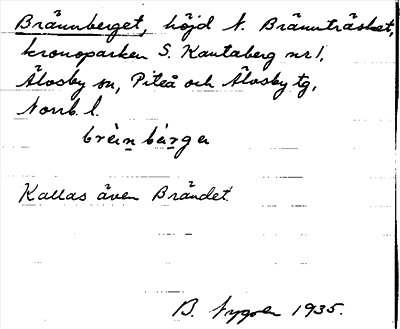 Brännberget, höjd N. Brännträsket,
kronoparken S. Kantaberg nr 1,
Älvsby sn, Piteå och Älvsby tg,
Norrb. l.
Kallas även Brändet.
B. 1935.